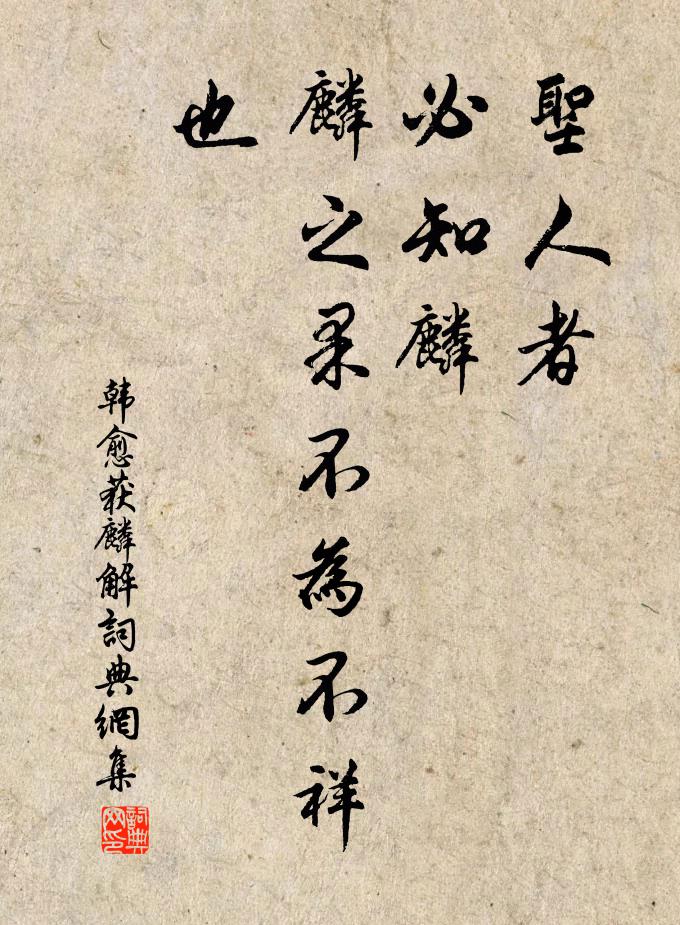 聖人者
必知麟
麟之果不為不祥
也
韩愈获麟解詞典網集
詞典
网印